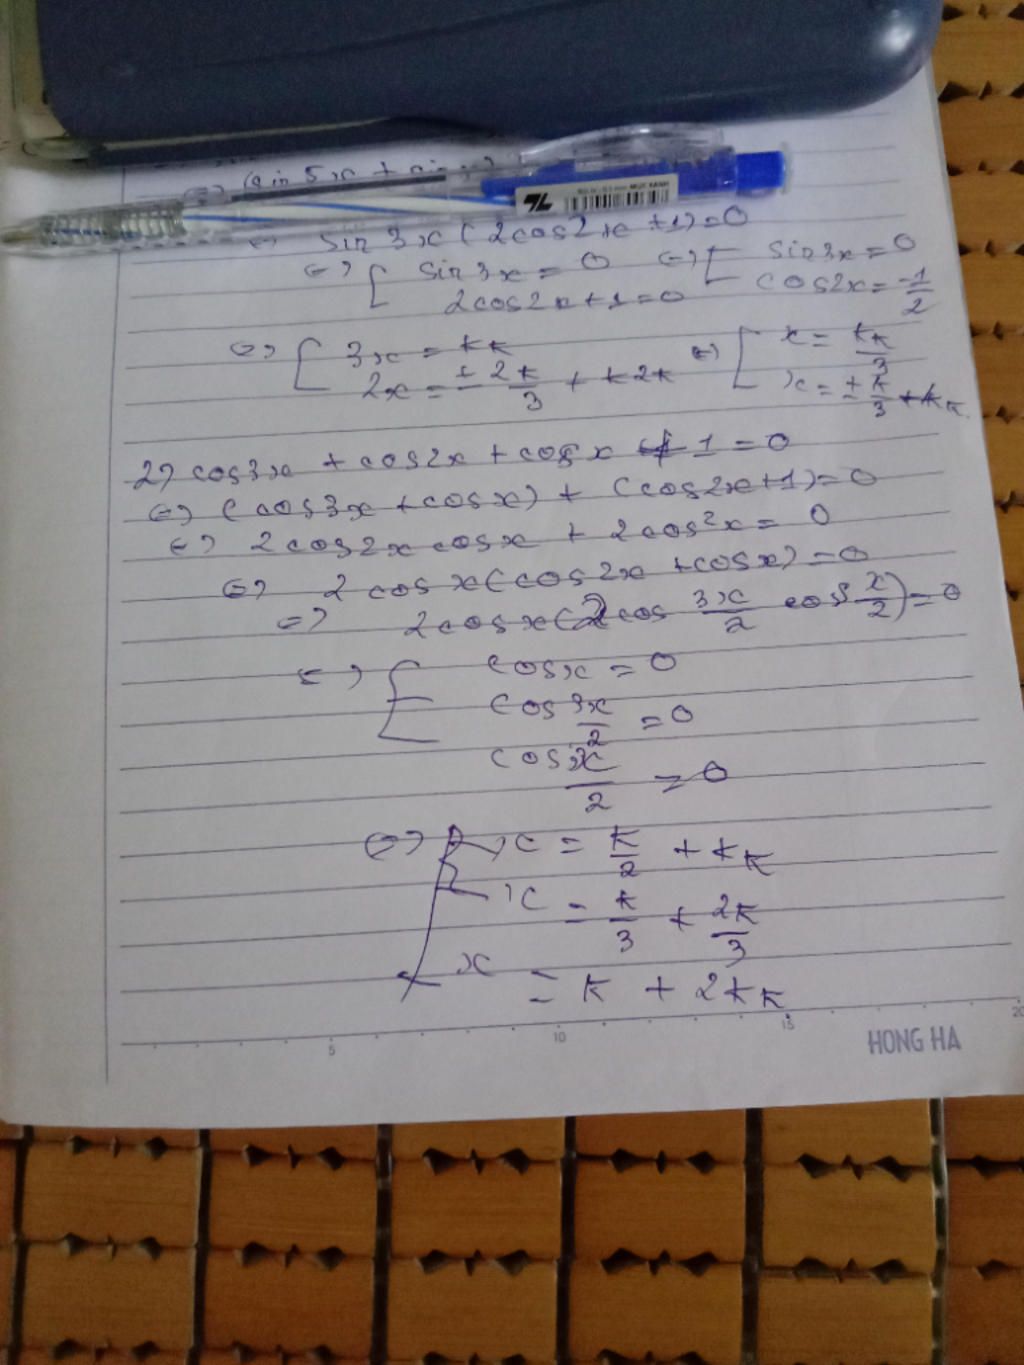 ⇔ (sin5x + sin
MỰC XANH
⇔ sin3x(2cos2x+1)=0
⇔ [ sin3x = 0 ⇔ [ sin3x = 0
2cos2x+1=0 cos2x = -1/2
⇔ [ 3x = kπ ⇔ [ x = kπ/3
2x = ± 2π/3 + k2π x = ± π/3 + kπ
2) cos3x + cos2x + cosx + 1 = 0
⇔ (cos3x + cosx) + (cos2x+1)=0
⇔ 2cos2x cosx + 2cos²x = 0
⇔ 2cosx(cos2x + cosx)=0
⇔ 2cosx(2cos 3x/2 cos x/2)=0
⇔ [ cosx = 0
cos 3x/2 = 0
cos x/2 = 0
⇔ [ x = π/2 + kπ
x = π/3 + 2π/3
x = π + 2kπ
5 10 15 20
HONG HA